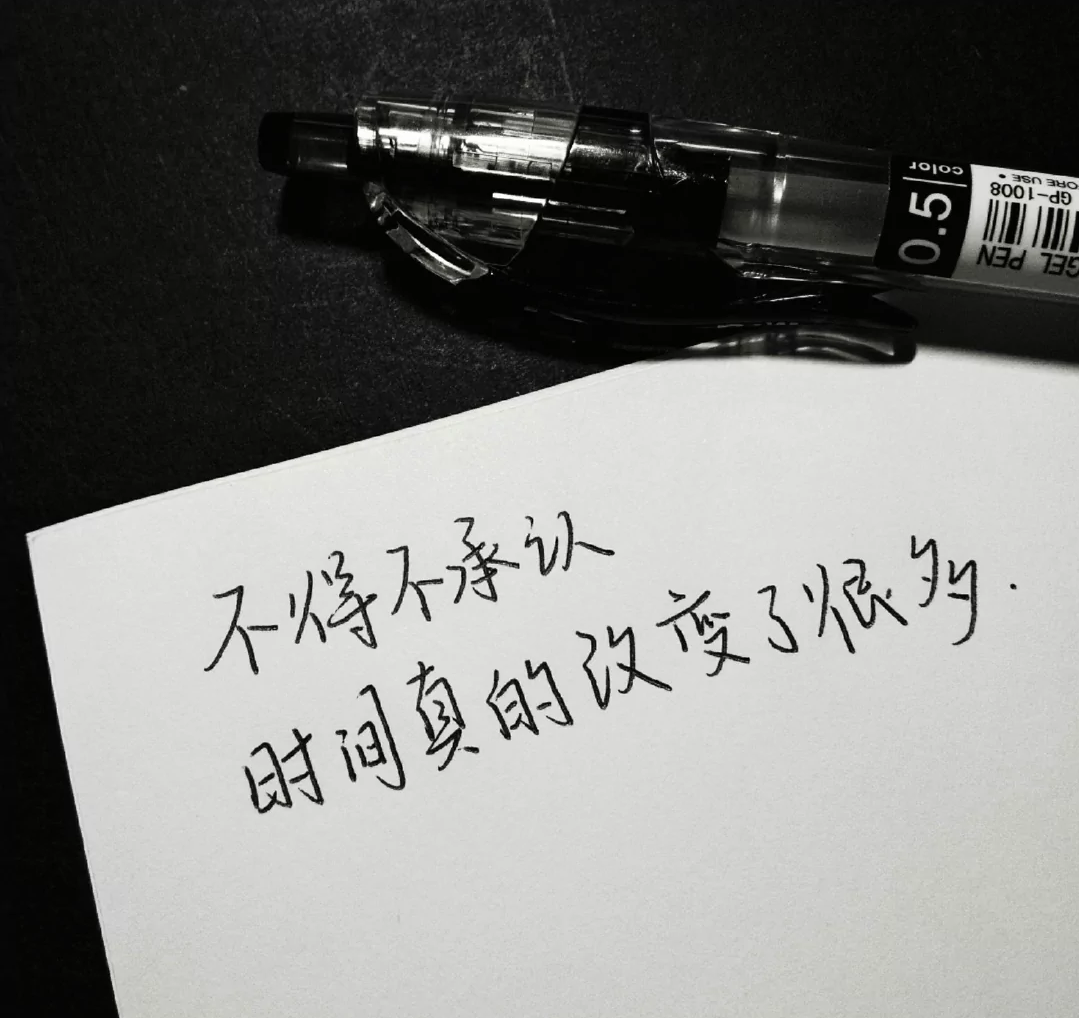 color
0.5
ORE USE •
GP-1008
GEL PEN
不得不承认
时间真的改变了很多.